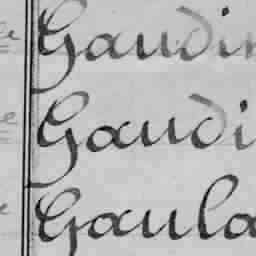 Gaudin
Gaudi
Gaula